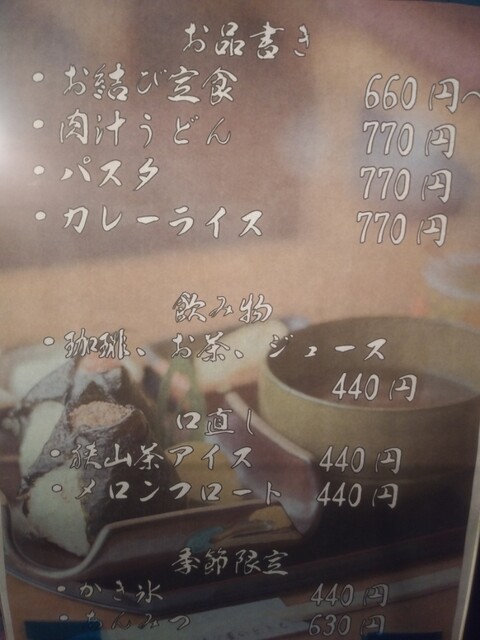 お品書き
・お結び定食 660円〜
・肉汁うどん 770円
・パスタ 770円
・カレーライス 770円
飲み物
・珈琲、お茶、ジュース
440円
口直し
・狭山茶アイス 440円
・メロンフロート 440円
季節限定
・かき氷 440円
・あんみつ 630円